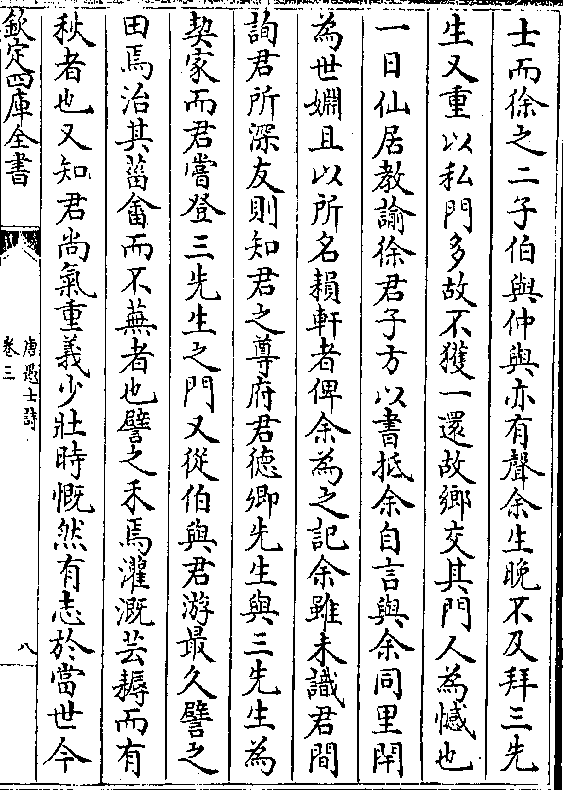 士而徐之二子伯與仲與亦有聲余生晚不及拜三先
生又重以私門多故不獲一還故鄉交其門人為憾也
一日仙居教諭徐君子方以書抵余自言與余同里閈
為世婣且以所名頼軒者俾余為之記余雖未識君間
詢君所深友則知君之尊府君德卿先生與三先生為
契家而君嘗登三先生之門又從伯與君游最久譬之
田焉治其菑畬而不蕪者也譬之禾焉灌溉芸耨而有
秋者也又知君尚氣重義少壯時慨然有志於當世今
欽定四庫全書
唐愚士詩
卷三
八